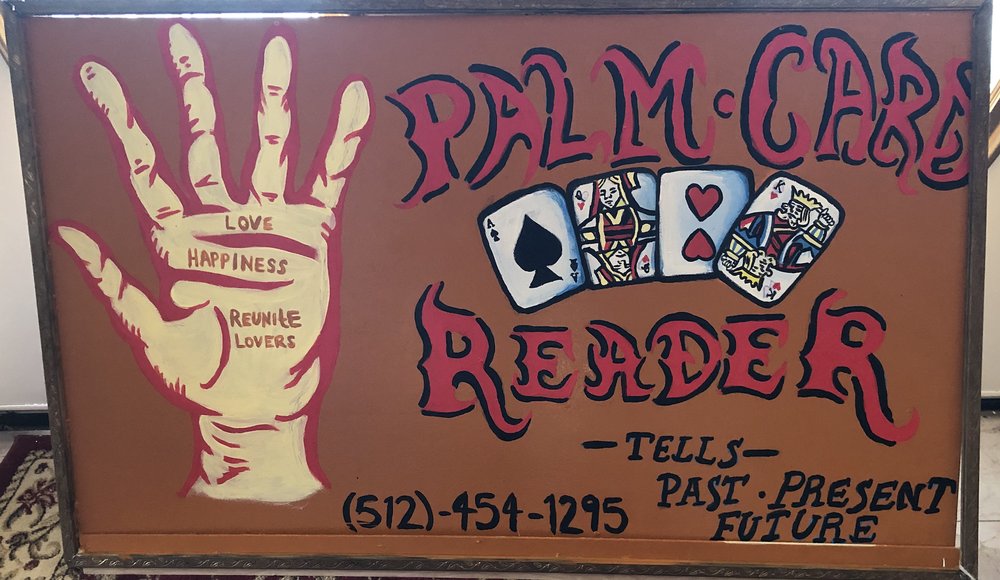 LOVE
HAPPINESS
REUNITE
LOVERS
PALM · CARD
A
A
Q
Q
K
K
READER
—TELLS—
PAST · PRESENT
FUTURE
(512)-454-1295